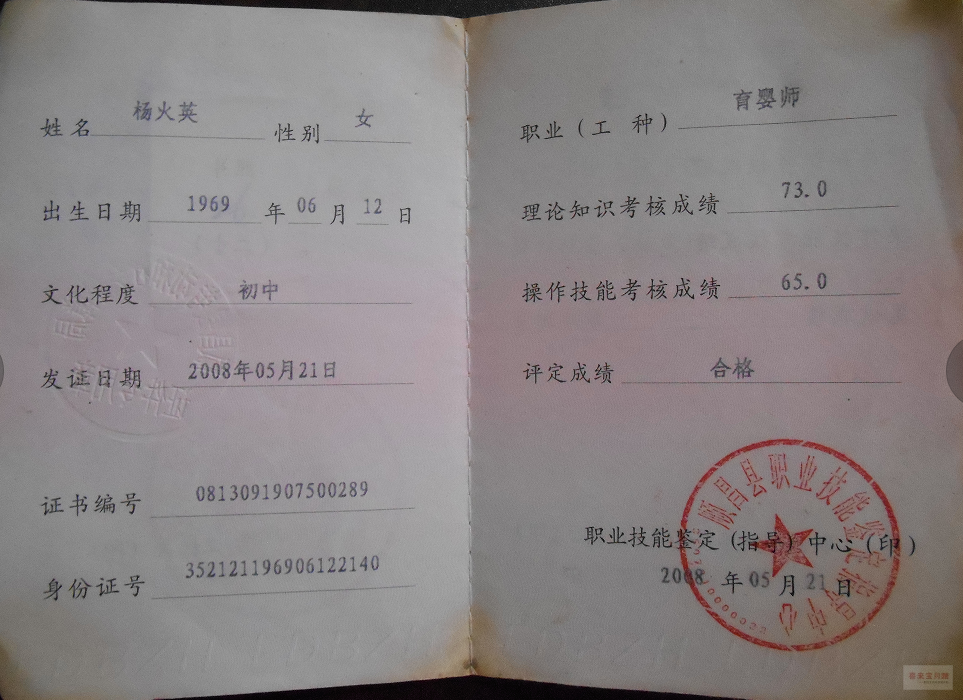 姓名 杨火英 性别 女
出生日期 1969 年 06 月 12 日
文化程度 初中
发证日期 2008年05月21日
证书编号 0813091907500289
身份证号 352121196906122140
职业（工 种） 育婴师
理论知识考核成绩 73.0
操作技能考核成绩 65.0
评定成绩 合格
顺昌县职业技能鉴定指导中心
职业技能鉴定（指导）中心（印）
2008 年 05 月 21 日